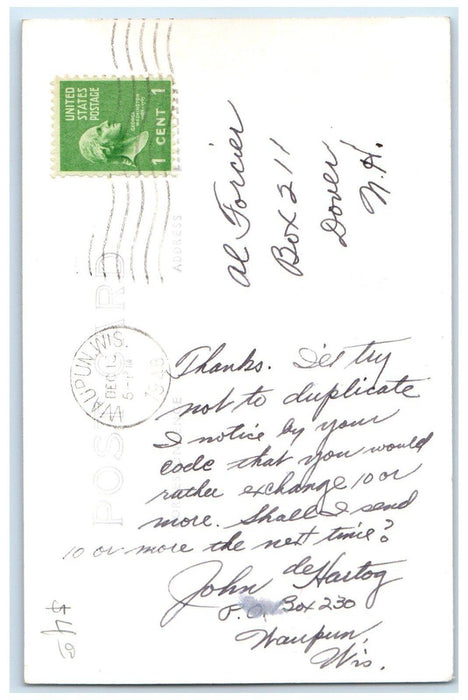 UNITED
STATES
POSTAGE
GEORGE
WASHINGTON
1 CENT 1
ADDRESS
POST CARD
WAUPUN, WIS.
DEC
5 - PM
Al Forcier
Box 211
Dover
N.H.
Thanks. I'll try
not to duplicate
I notice by your
code that you would
rather exchange 10 or
more. Shall I send
10 or more the next time?
John deHartog
P.O. Box 230
Waupun,
Wis.